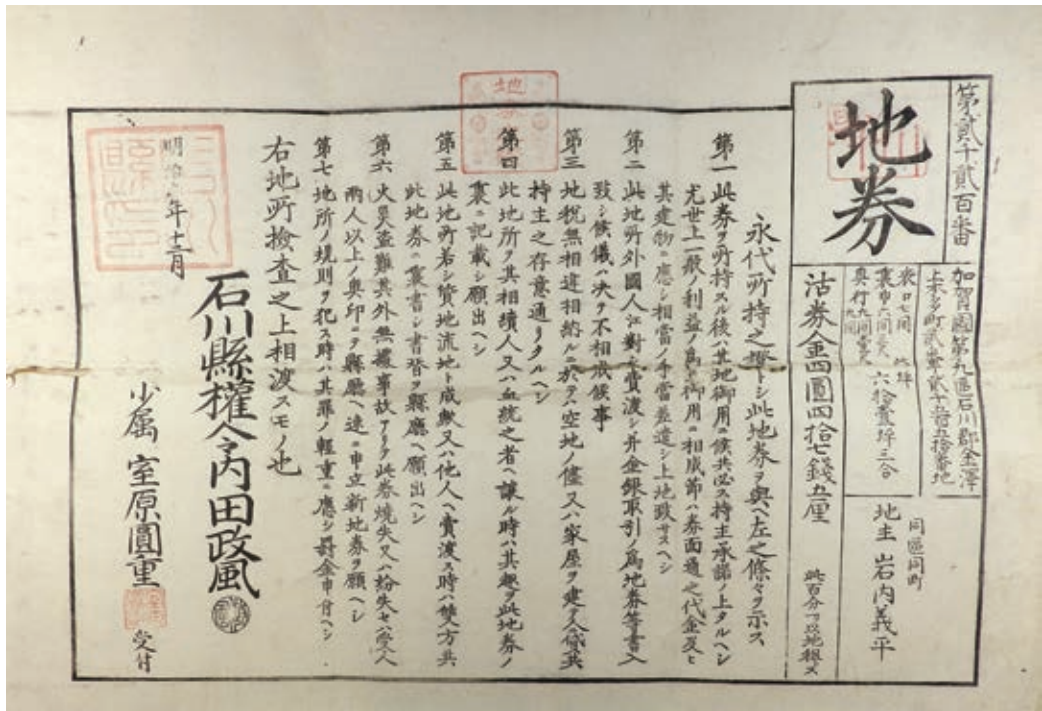 第貳千貳百番
地券
加賀國第九區石川郡金澤
表口七間
裏巾六間壹尺
奥行九間壹尺
六拾壹坪三合
同區同町
地主 岩内義平
沽券金四圓四拾七錢五厘
此百分一ヲ以地租ス
永代所持之證トシ此地券ヲ與ヘ左之條々ヲ示ス
第一 此券ヲ所持スル後ハ其地御用ノ候共必ス持主承諾ノ上タルヘシ
尤世上一般ノ利益ノ為メ御用ニ相成節ハ券面通之代金及ヒ
其建物ニ應シ相當ノ手當差遣シ上地致サスヘシ
第二 此地所外國人江對シ賣渡シ并金銀取引ノ為地券等書入
致シ候儀ハ決テ不相成候事
第三 地税無相違相納ルニ於テハ空地ノ儘又ハ家屋ヲ建テ人ヘ貸共
持主之存意通リタルヘシ
第四 此地所ヲ其相續人又ハ血統之者ヘ讓ル時ハ其趣ヲ此地券ノ
裏ニ記載シ願出ヘシ
第五 此地所若シ質地流地ト成歟又ハ他人ヘ賣渡ス時ハ雙方共
此地券ニ裏書シ書替ヲ縣廳ヘ願出ヘシ
第六 火災盗難其外無據事故アリテ此券燒失又ハ紛失セハ證人
兩人以上ノ奥印ニテ縣廳ヘ速ニ申立新地券ヲ願ヘシ
第七 地所ノ規則ヲ犯ス時ハ其罪ノ輕重ニ應シ罰金申付ヘシ
右地所撿査之上相渡スモノ也
明治 年十二月
石川縣權令内田政風
少屬 室原圓重 受付